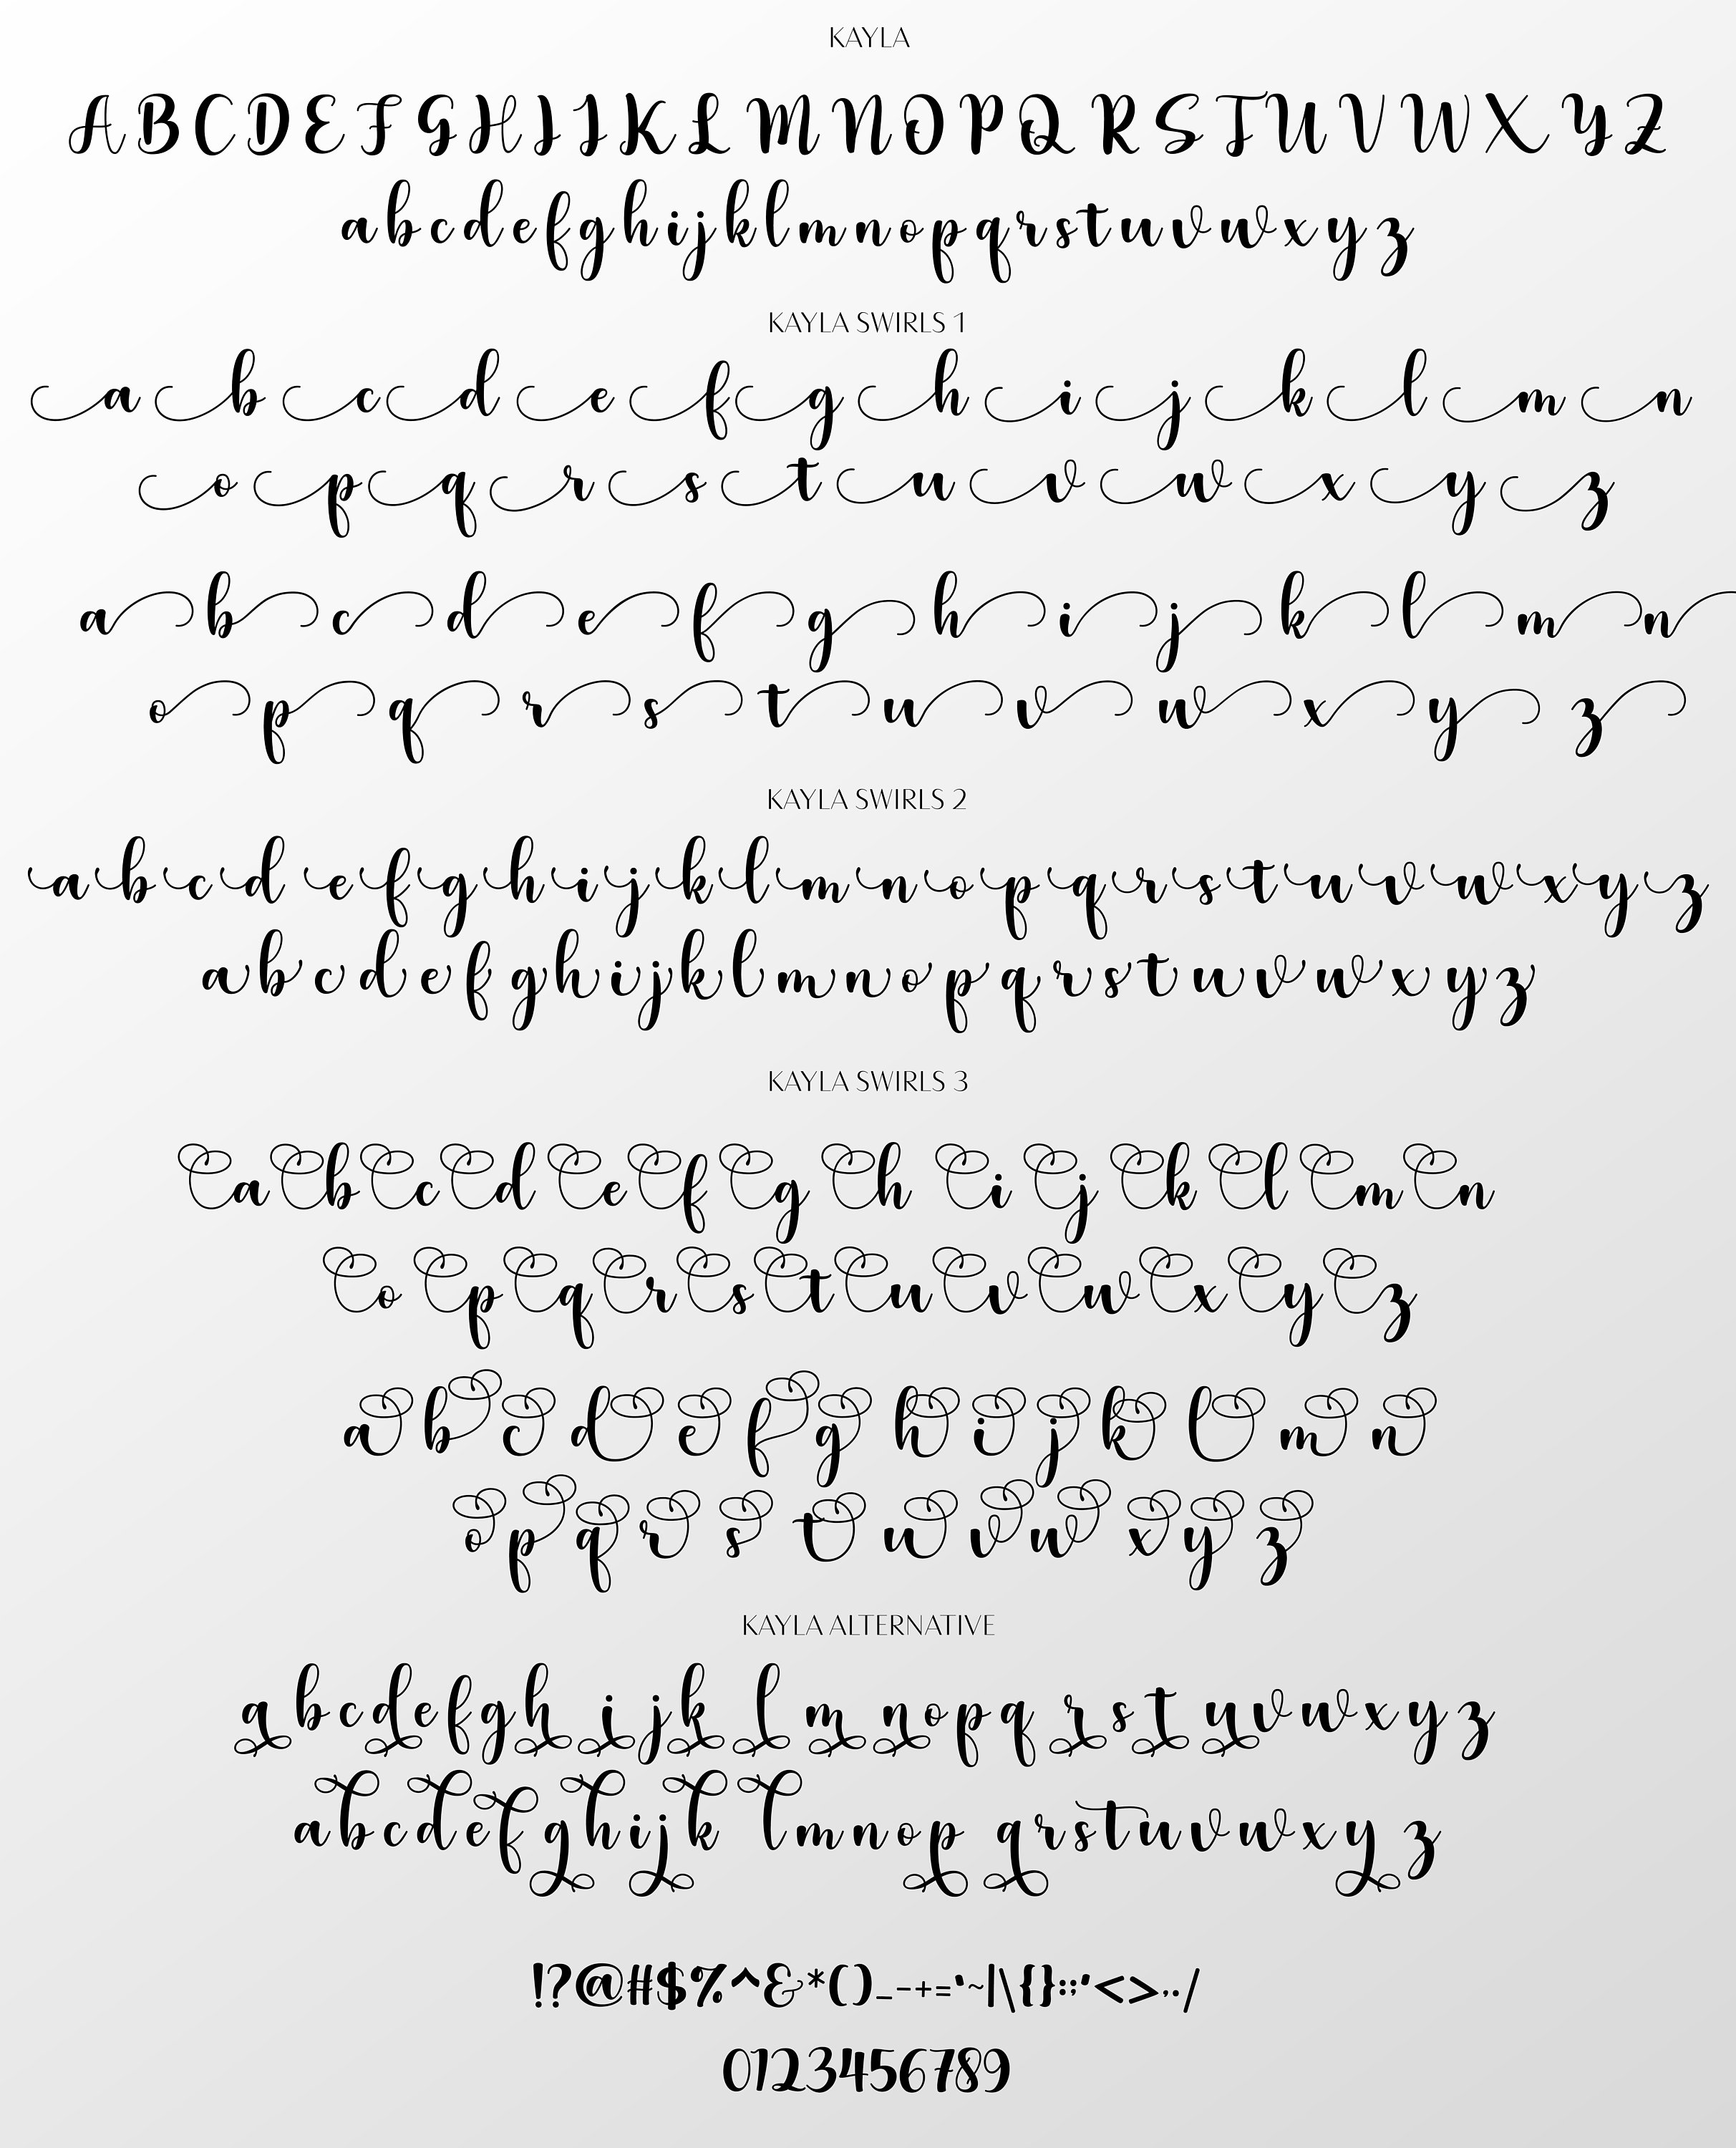 KAYLA
A B C D E F G H I J K L M N O P Q R S T U V W X Y Z
a b c d e f g h i j k l m n o p q r s t u v w x y z
KAYLA SWIRLS 1
a b c d e f g h i j k l m n
o p q r s t u v w x y z
a b c d e f g h i j k l m n
o p q r s t u v w x y z
KAYLA SWIRLS 2
a b c d e f g h i j k l m n o p q r s t u v w x y z
a b c d e f g h i j k l m n o p q r s t u v w x y z
KAYLA SWIRLS 3
a b c d e f g h i j k l m n
o p q r s t u v w x y z
a b c d e f g h i j k l m n
o p q r s t u v w x y z
KAYLA ALTERNATIVE
a b c d e f g h i j k l m n o p q r s t u v w x y z
a b c d e f g h i j k l m n o p q r s t u v w x y z
!?@#$%^&*()_-+=`~|\{}:;'<>,./
0123456789